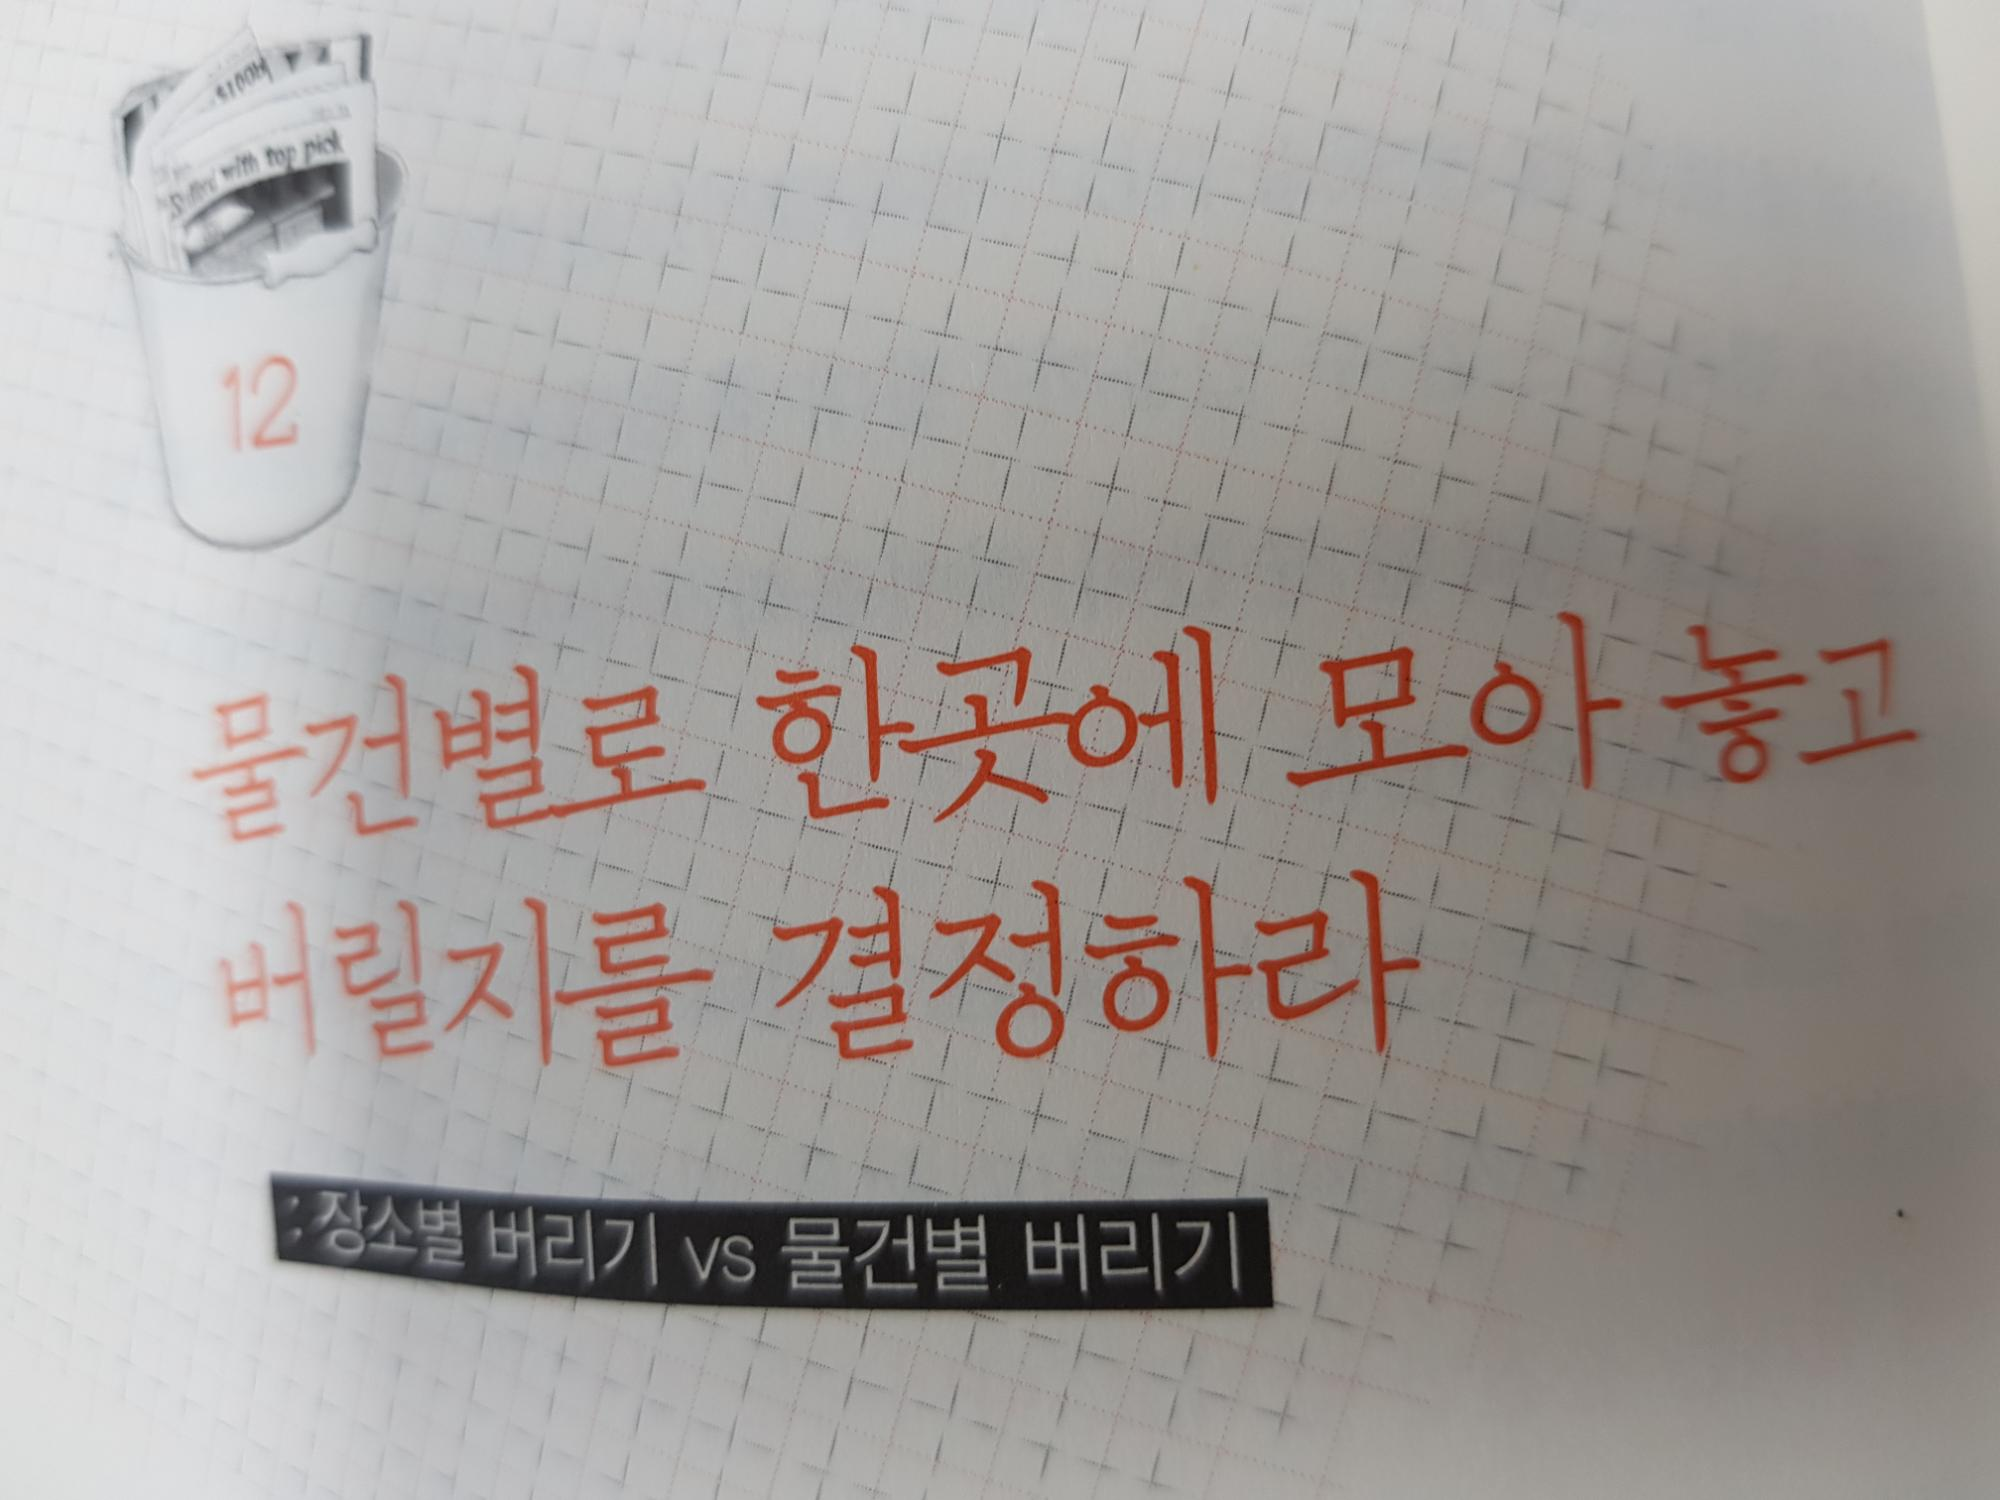 with top pick
12
물건별로 한곳에 모아 놓고
버릴지를 결정하라
: 장소별 버리기 vs 물건별 버리기